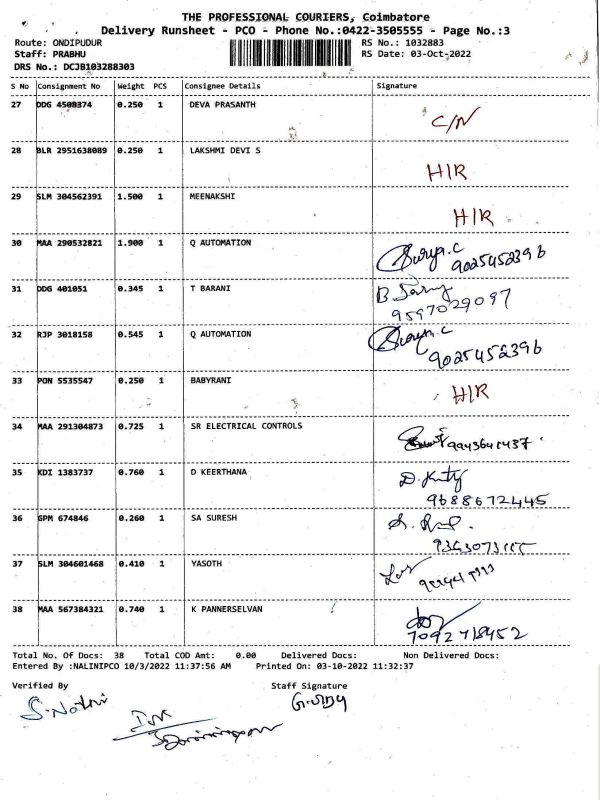 THE PROFESSIONAL COURIERS, Coimbatore
Delivery Runsheet - PCO - Phone No.:0422-3505555 - Page No.:3
Route: ONDIPUDUR RS No.: 1032883
Staff: PRABHU RS Date: 03-Oct-2022
DRS No.: DCJB103288303
S No Consignment No Weight PCS Consignee Details Signature
27 DDG 4508374 0.250 1 DEVA PRASANTH C/N
28 BLR 2951638089 0.250 1 LAKSHMI DEVI S H/R
29 SLM 304562391 1.500 1 MEENAKSHI H/R
30 MAA 290532821 1.900 1 Q AUTOMATION Surya.C 9025452396
31 DDG 401051 0.345 1 T BARANI 9597029097
32 RJP 3018158 0.545 1 Q AUTOMATION Surya.C 9025452396
33 PON 5535547 0.250 1 BABYRANI H/R
34 MAA 291304873 0.725 1 SR ELECTRICAL CONTROLS 9943641437
35 KDI 1383737 0.760 1 D KEERTHANA 9688672445
36 GPM 674846 0.260 1 SA SURESH
37 SLM 304601468 0.410 1 YASOTH
38 MAA 567384321 0.740 1 K PANNERSELVAN 7092718452
Total No. Of Docs: 38 Total COD Amt: 0.00 Delivered Docs: Non Delivered Docs:
Entered By :NALINIPCO 10/3/2022 11:37:56 AM Printed On: 03-10-2022 11:32:37
Verified By Staff Signature